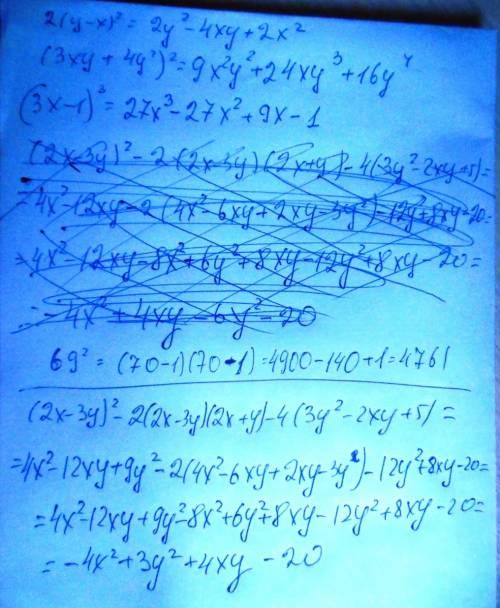 2(y-x)² = 2y² - 4xy + 2x²
(3xy + 4y²)² = 9x²y² + 24xy³ + 16y⁴
(3x-1)³ = 27x³ - 27x² + 9x - 1
(2x-3y)² - 2(2x-3y)(2x+y) - 4(3y² - 2xy + 5) =
= 4x² - 12xy - 2(4x² - 6xy + 2xy - 3y²) - 12y² + 8xy - 20 =
= 4x² - 12xy - 8x² + 6y² + 8xy - 12y² + 8xy - 20 =
= -4x² + 4xy - 6y² - 20
69² = (70-1)(70-1) = 4900 - 140 + 1 = 4761
(2x-3y)² - 2(2x-3y)(2x+y) - 4(3y² - 2xy + 5) =
= 4x² - 12xy + 9y² - 2(4x² - 6xy + 2xy - 3y²) - 12y² + 8xy - 20 =
= 4x² - 12xy + 9y² - 8x² + 6y² + 8xy - 12y² + 8xy - 20 =
= -4x² + 3y² + 4xy - 20